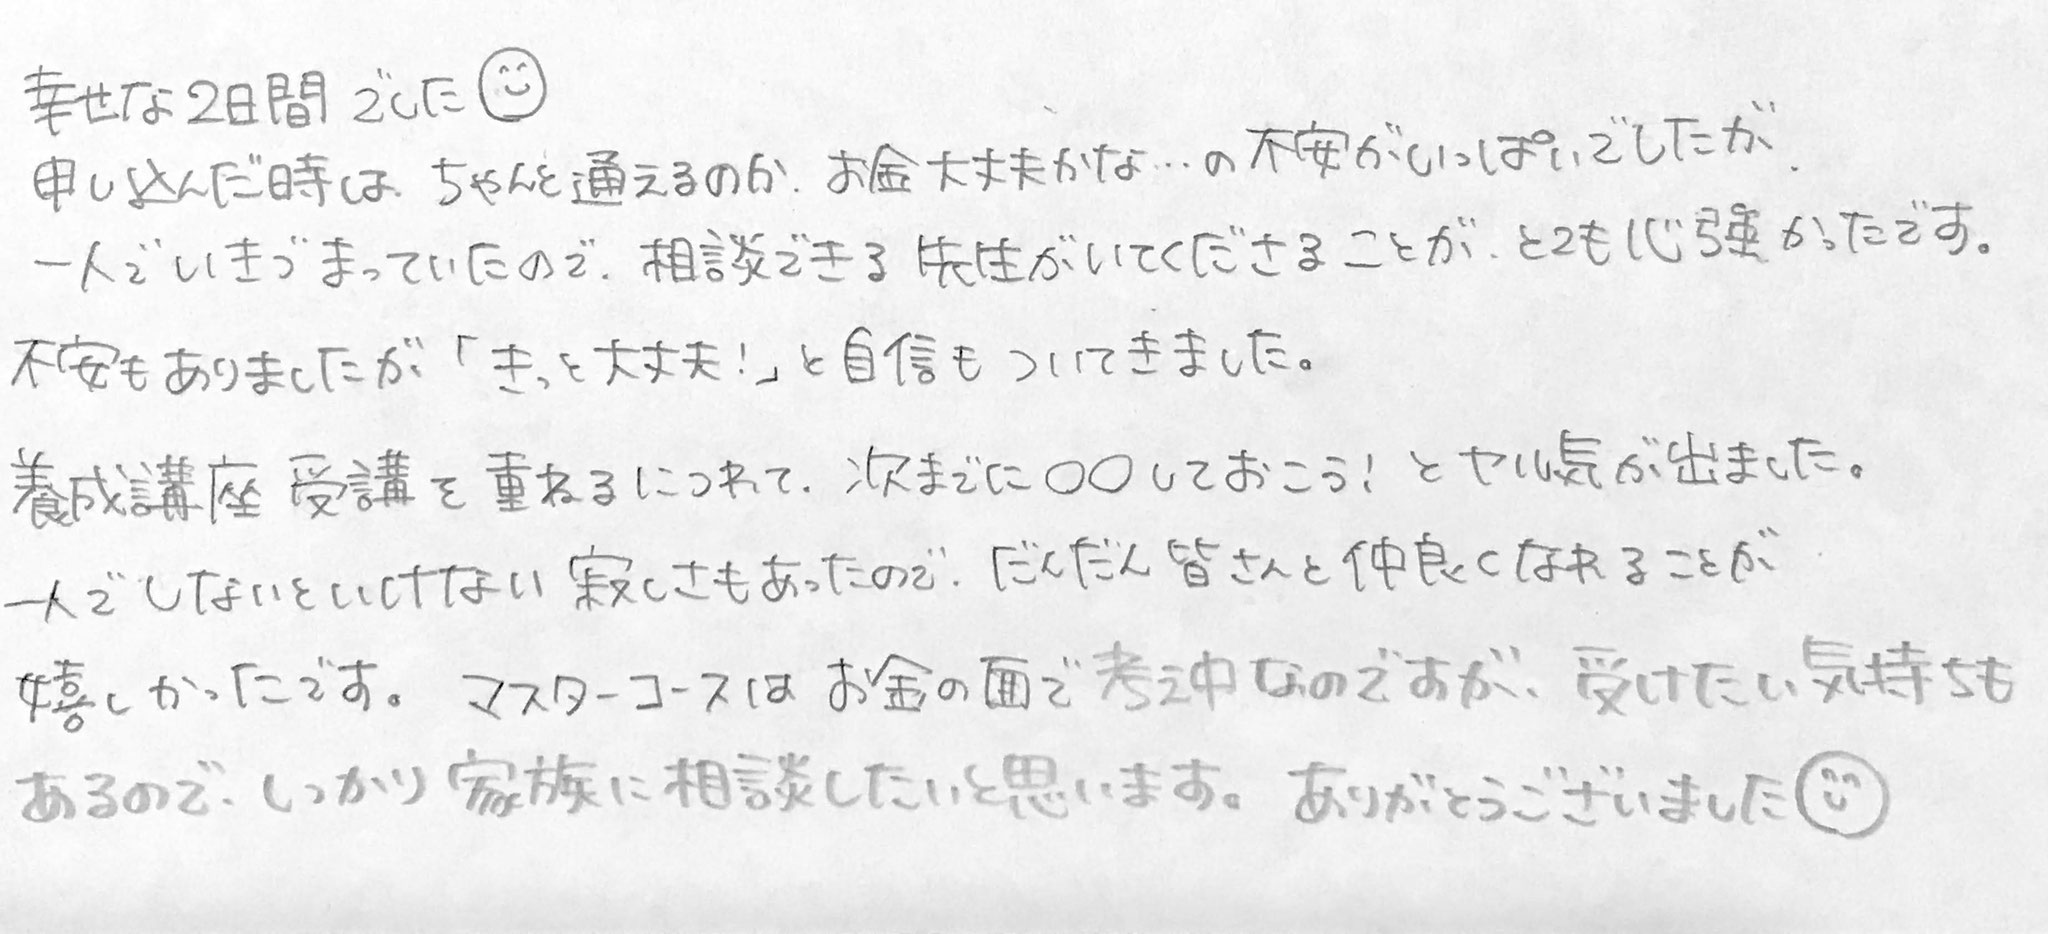 幸せな2日間でした
申し込んだ時は、ちゃんと通えるのか、お金大丈夫かな…の不安がいっぱいでしたが、
一人でいきづまっていたので、相談できる先生がいてくださることが、とても心強かったです。
不安もありましたが「きっと大丈夫!」と自信もついてきました。
養成講座受講を重ねるにつれて、次までに〇〇しておこう!とヤル気が出ました。
一人でしないといけない寂しさもあったので、だんだん皆さんと仲良くなれることが
嬉しかったです。マスターコースはお金の面で考え中なのですが、受けたい気持ちも
あるので、しっかり家族に相談したいと思います。ありがとうございました